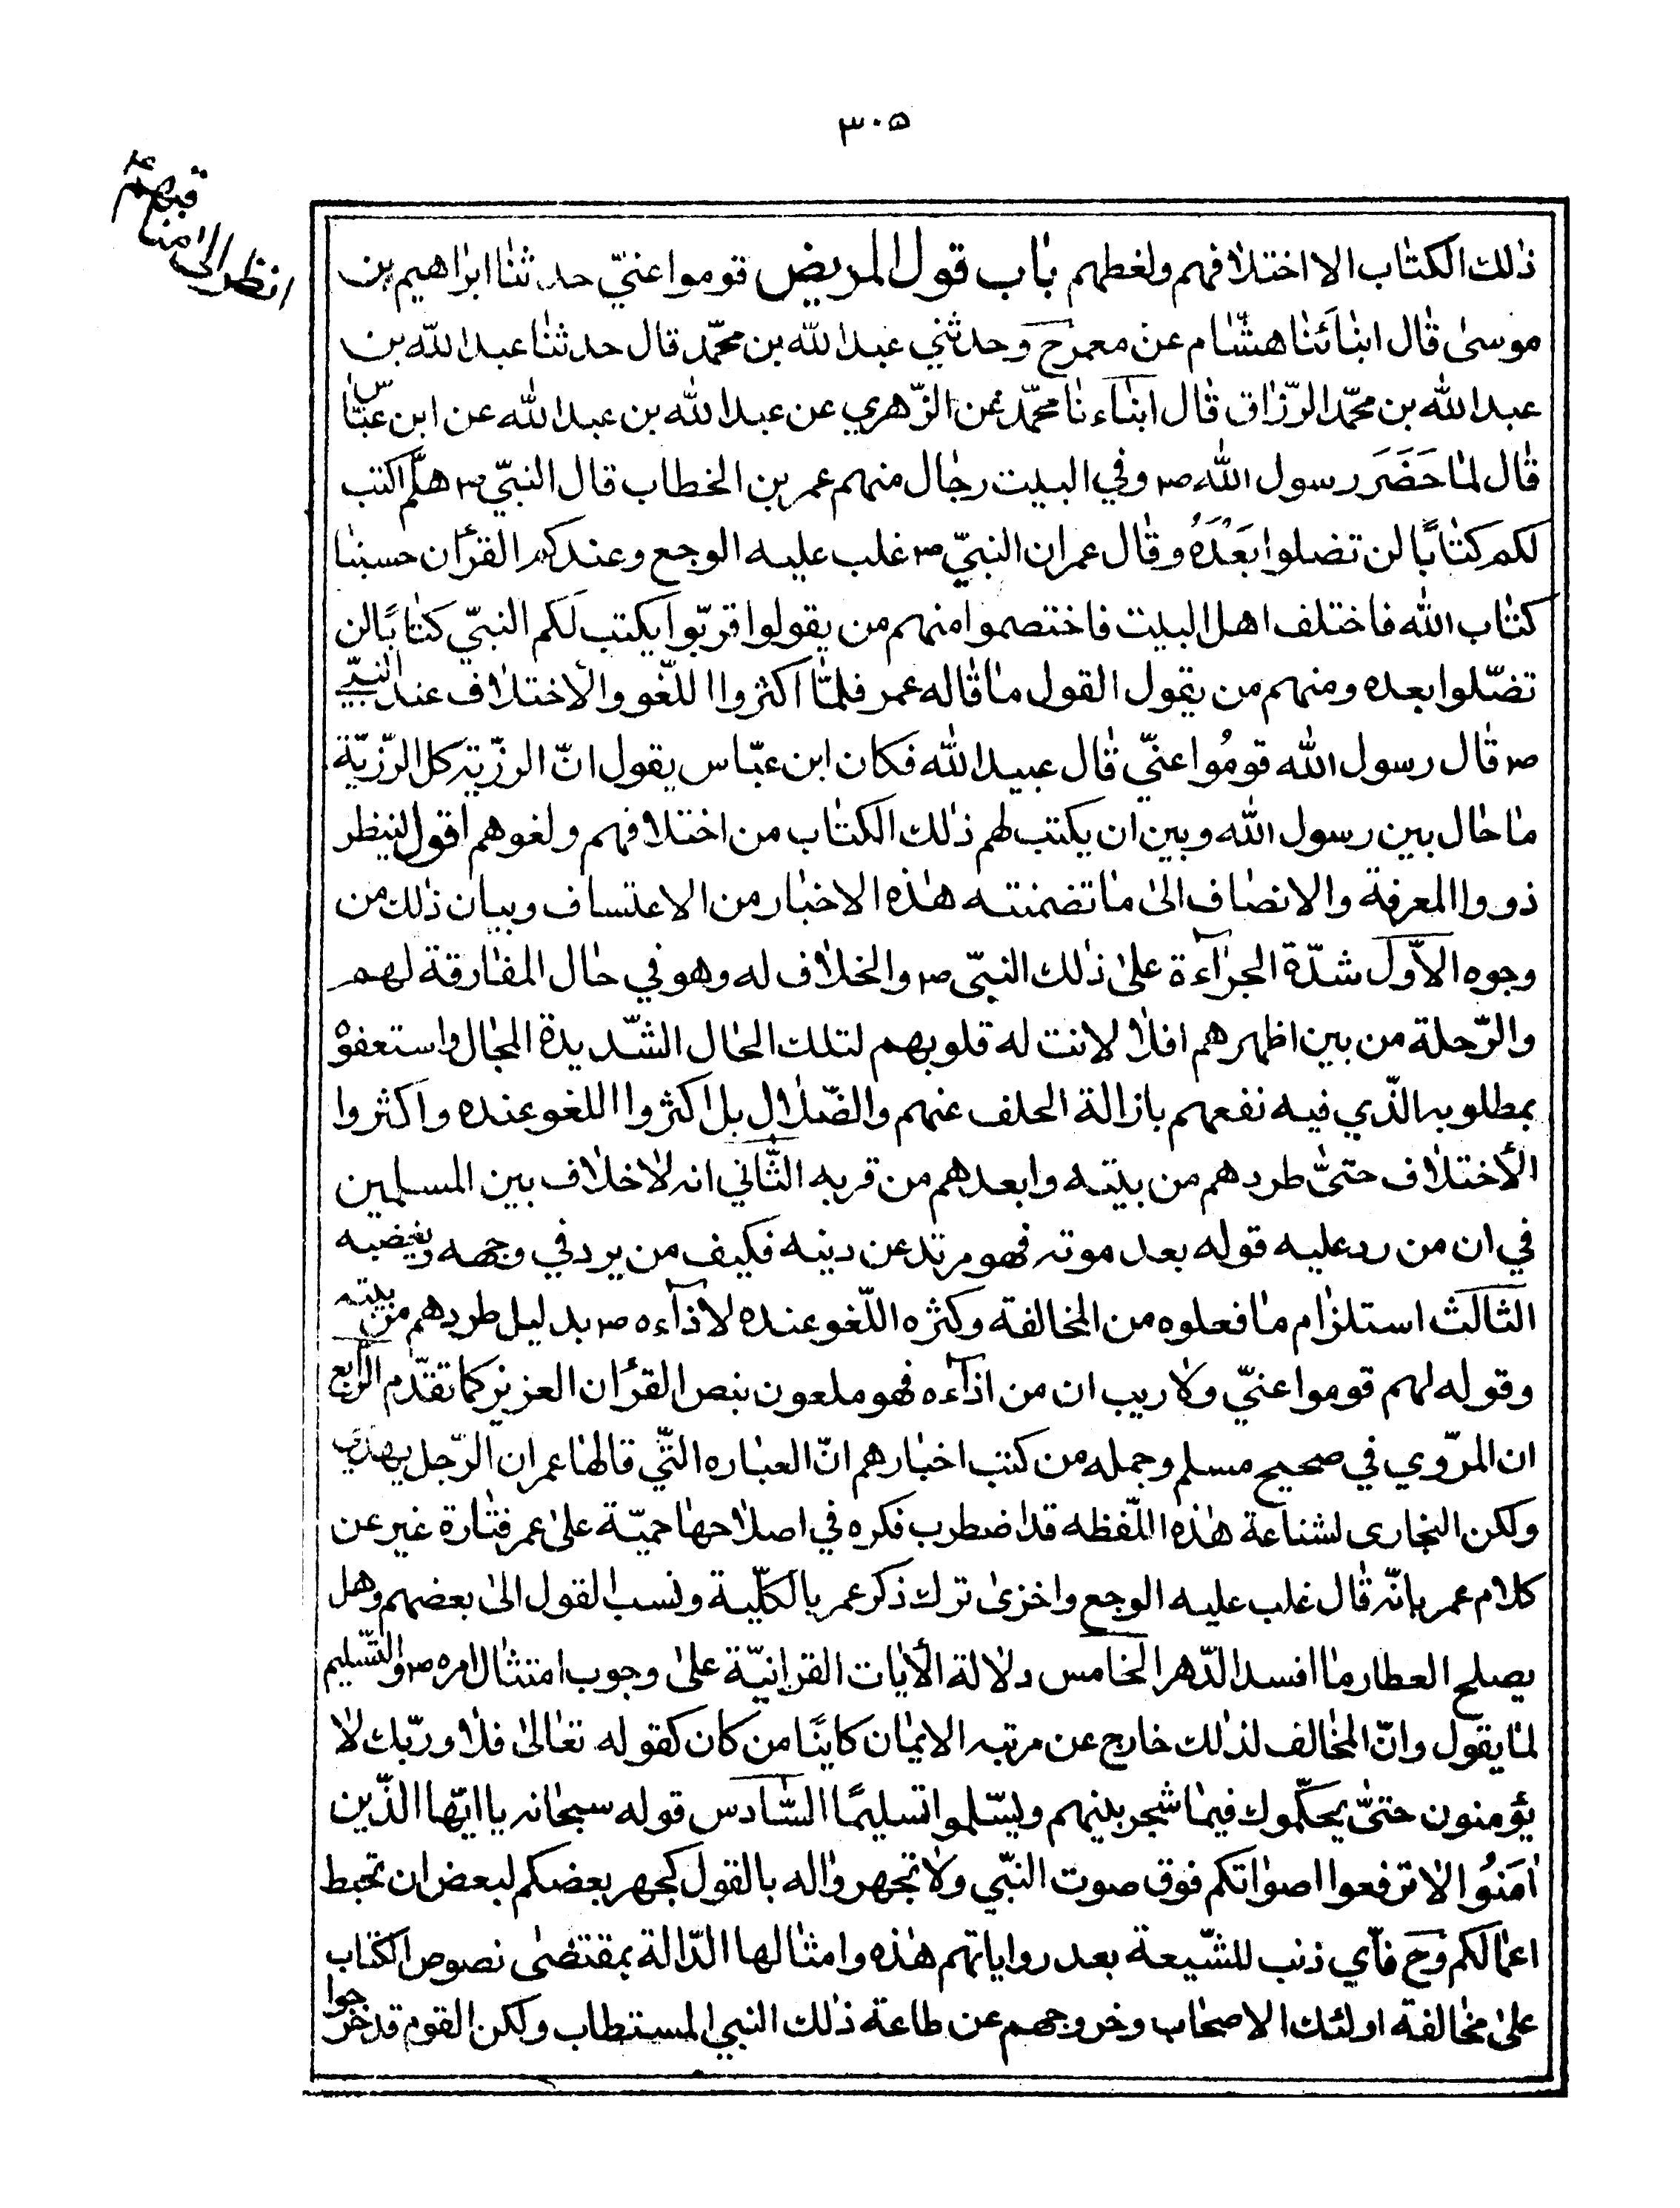 ٣٠٥
انظر الى مناقبهم
ذٰلك الكتٰاب الا اختلٰافهم ولغطهم بٰاب قول المريض قوموا عنيّ حدثنٰا ابرٰاهيم بن
موسىٰ قٰال انبٰائنٰا هشٰام عن معمر ح وحدثني عبد اللّٰه بن محمّد قال حدثنٰا عبد اللّٰه بن
عبد اللّٰه بن محمّد الرّزٰاق قٰال انبٰاءنٰا محمّد عن الزّهري عن عبد اللّٰه بن عبد اللّٰه عن ابن عبّٰاس
قٰال لمٰا حَضَرَ رسول اللّٰه ص وفي البيت رجٰال منهم عمر بن الخطاب قال النبيّ ص هلّم اكتب
لكم كتٰابًا لن تضلوا بَعْدَهُ وقٰال عمر ان النبيّ ص غلب عليه الوجع وعندكم القرأن حسبنٰا
كتٰاب اللّٰه فاختلف اهل البيت فاختصموا منهم من يقولوا قربّوا يكتب لكم النبيّ كتٰابًا لن
تضّلوا بعده ومنهم من يقول القول مٰا قٰاله عمر فلمّٰا اكثروا اللّغو والأختلٰاف عند النبيّ
ص قٰال رسول اللّٰه قومُوا عنيّ قٰال عبيد اللّٰه فكان ابن عبّاس يقول انّ الرزّية كل الرّزيّة
مٰا حٰال بين رسول اللّٰه وبين ان يكتب لهم ذٰلك الكتٰاب من اختلٰافهم ولغوهم اقول لينظر
ذووا المعرفة والانصٰاف الىٰ مٰا تضمنته هٰذه الاخبٰار من الاعتساف وبيان ذٰلك من
وجوه الأوّل شدّة الجرٰآءة علىٰ ذٰلك النبيّ ص والخلٰاف له وهو في حٰال المفٰارقة لهم
والرّحلة من بين اظهرهم افلٰا لانت له قلوبهم لتلك الحٰال الشّديدة المجٰال واستعفوْ
بمطلوبه الّذي فيه نفعهم بازالة الحلف عنهم والضّلٰال بل اكثروا اللغو عنده واكثروا
الأختلٰاف حتىّٰ طردهم من بيته وابعدهم من قربه الثّٰاني انه لٰا خلٰاف بين المسلمين
في ان من رد عليه قوله بعد موته فهو مرتد عن دينه فكيف من يرد في وجهه وبغضبه
الثٰالث استلزٰام مٰا فعلوه من المخالفة وكثره اللّغو عنده لاذآءه ص بدليل طردهم من بيته
وقوله لهم قوموا عنيّ ولٰا ريب ان من اذآءه فهو ملعون بنص القرأن العزيز كما تقدّم الرٰابع
ان المرّوي في صحيح مسلم وجمله من كتب اخبارهم انّ العبٰاره التّي قالهٰا عمر ان الرّجل يهذي
ولكن البخارى لشناعة هٰذه اللّفظه قد اضطرب فكره في اصلٰاحهٰا حميّة علىٰ عمر فتٰارة غير عن
كلام عمر بانّه قٰال غلب عليه الوجع واخرىٰ ترك ذكر عمر بالكلّية ونسب القول الىٰ بعضهم وهل
يصلح العطار مٰا افسد الدّهر الخٰامس دلٰالة الأيٰات القرانيّة علىٰ وجوب امتثٰال امره ص والتّسليم
لمٰا يقول وانّ المخٰالف لذٰلك خارج عن مرتبه الايمٰان كاينًا من كان كقوله تعٰالىٰ فلٰا وربّك لٰا
يؤمنون حتىّٰ يحكّموك فيمٰا شجر بينهم ويسّلموا تسليمًا السّٰادس قوله سبحٰانه يا ايّها الذّين
اٰمَنوُا لٰا ترفعوا اصوٰاتكم فوق صوت النبّي ولٰا تجهروٰا له بالقول كجهر بعضكم لبعض ان تحبط
اعمٰالكم وَح فأي ذنب للشّيعة بعد روايٰاتهم هٰذه وامثٰالها الدّالة بمقتضىٰ نصوص الكتٰاب
علىٰ مخٰالفة اولئك الاصحٰاب وخروجهم عن طاعة ذٰلك النبي المستطاب ولكن القوم قد خرجوا